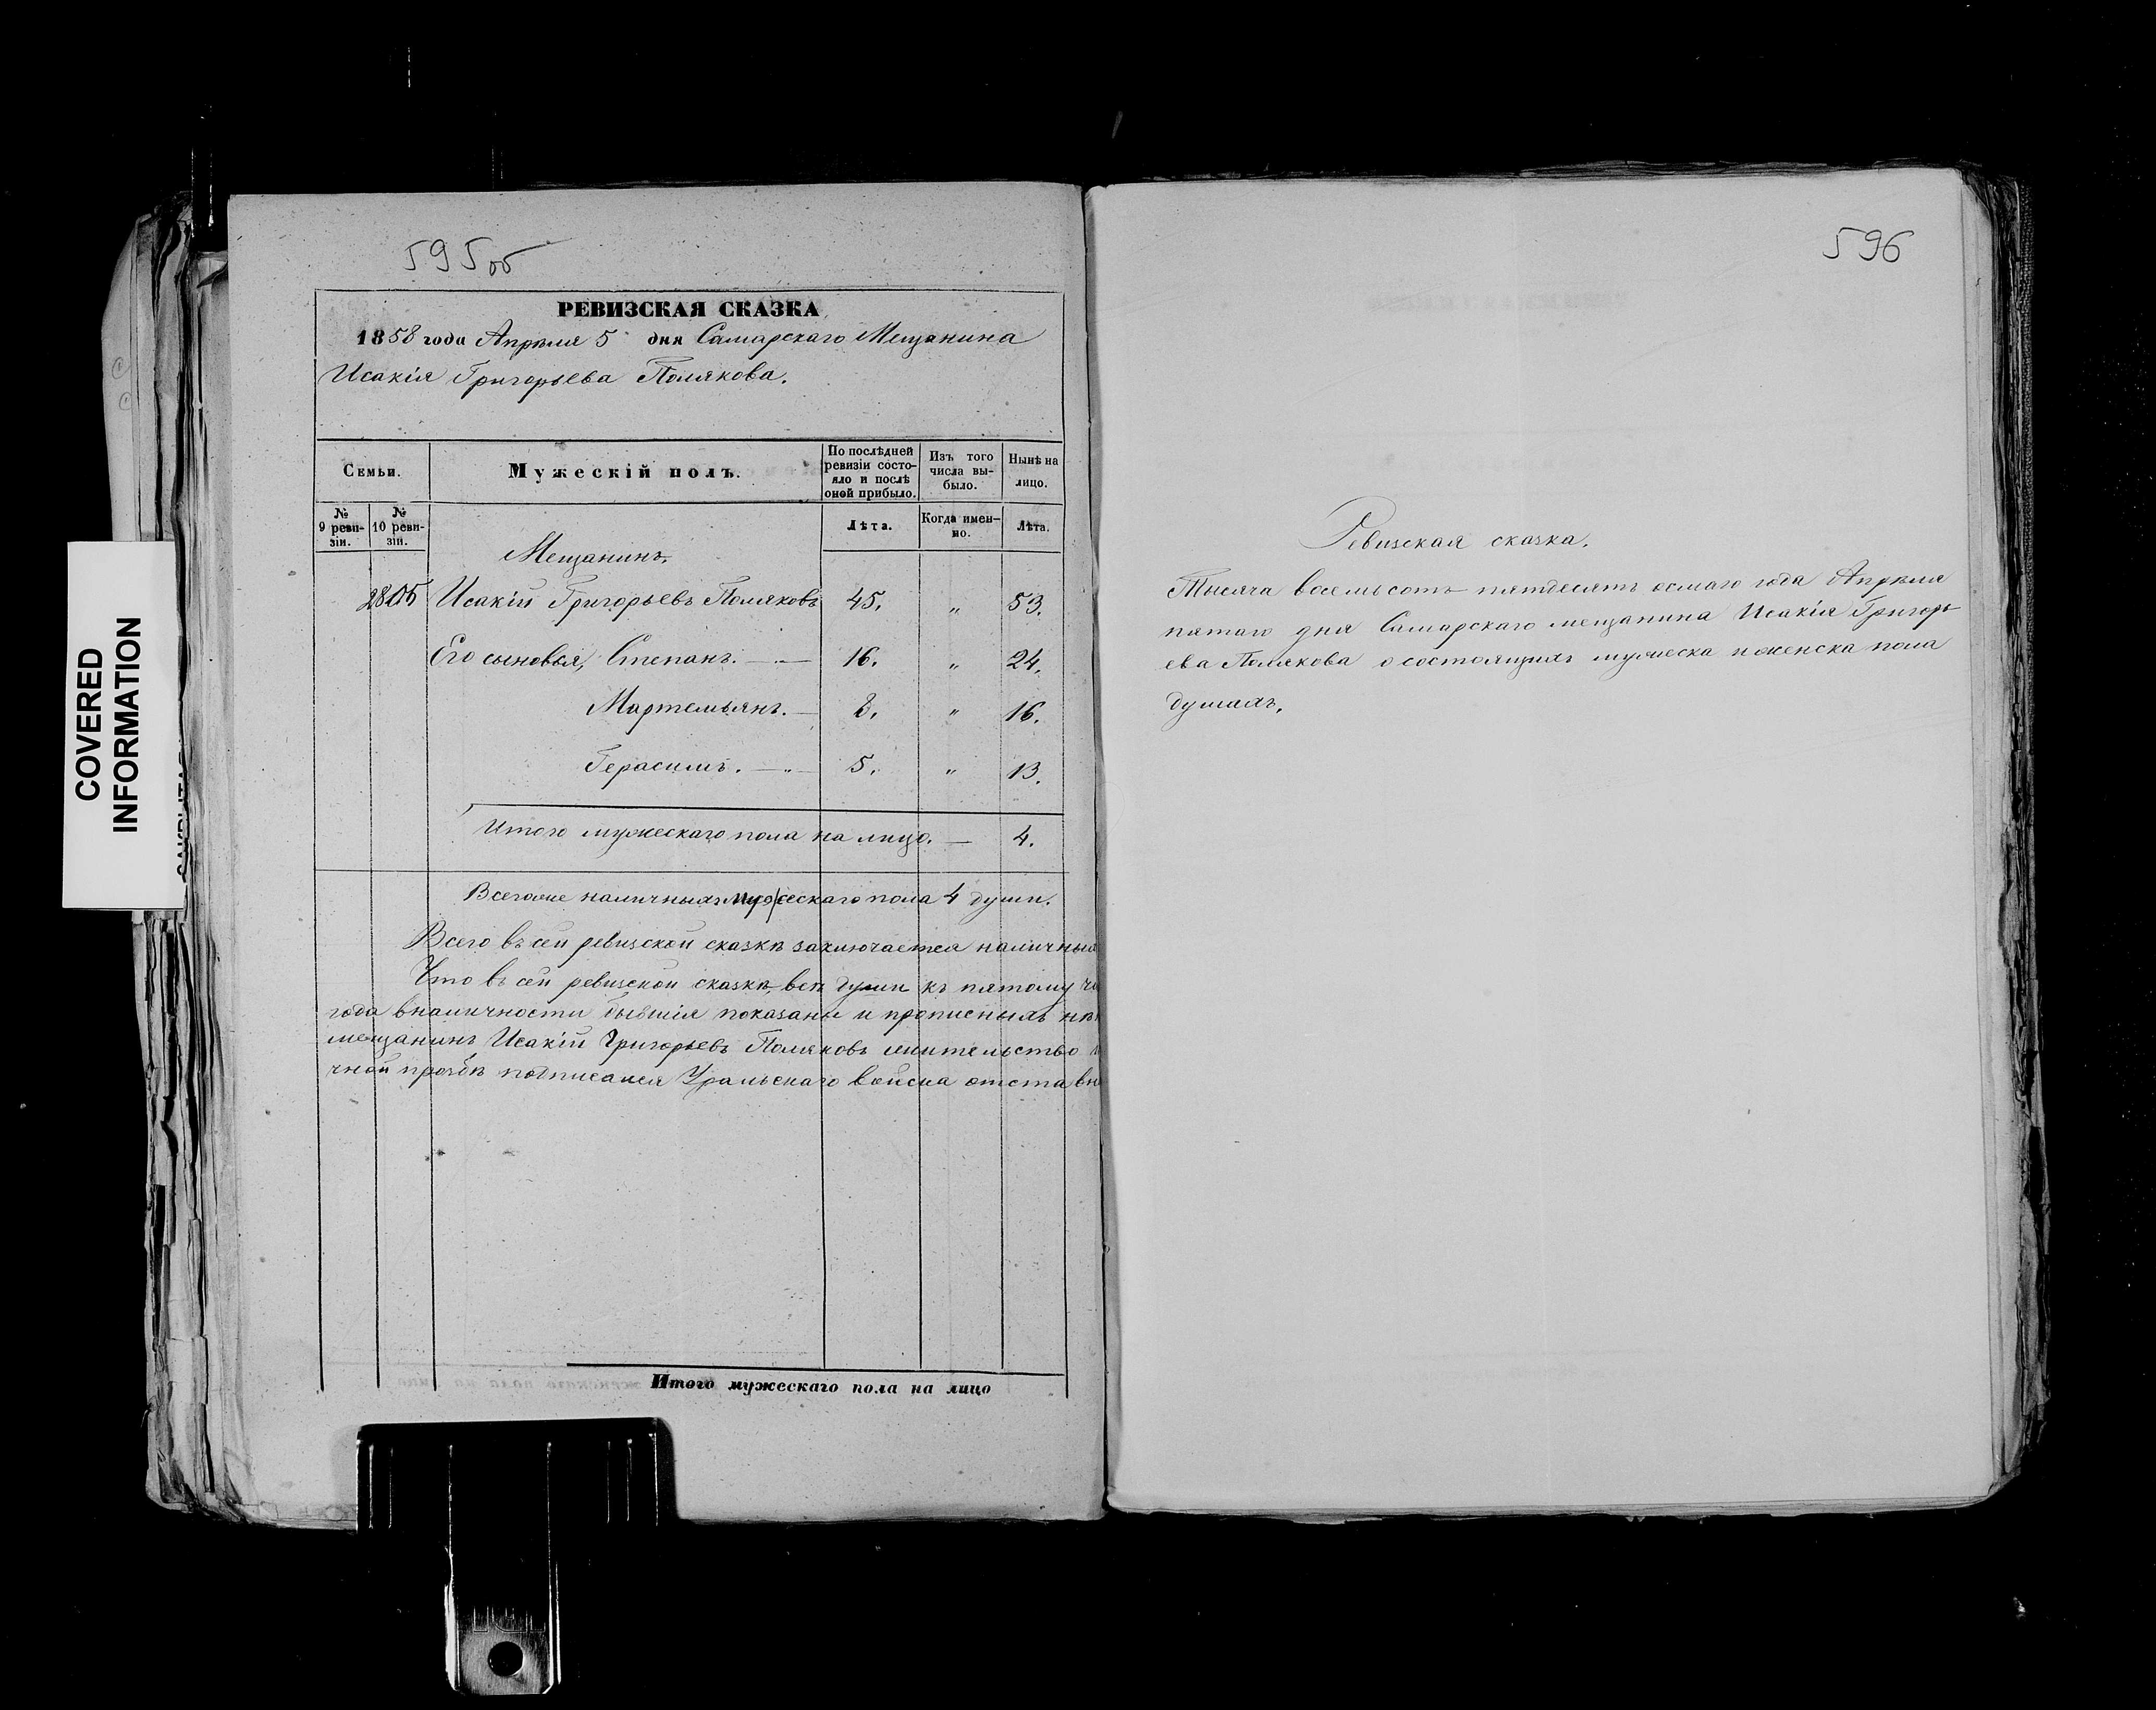 595об
РЕВИЗСКАЯ СКАЗКА
1858 года Апрѣля 5 дня Самарскаго Мещанина
Исакія Григорьева Полякова.
Семьи.
Мужескій полъ.
По послѣдней ревизіи состояло и послѣ оной прибыло.
Изъ того числа выбыло.
Нынѣ на лицо.
№ 9 ревизіи.
№ 10 ревизіи.
Лѣта.
Когда именно.
Лѣта.
Мещанинъ.
2805 Исакій Григорьевъ Поляковъ 45. „ 53.
Его сыновья, Степанъ. — „ — 16. „ 24.
Мартемьянъ. — 8. „ 16.
Герасимъ. — „ — 5. „ 13.
Итого мужескаго пола на лицо. — 4.
Всего же наличныхъ мужескаго пола 4 души.
Всего въ сей ревизской сказкѣ заключается наличныхъ
Что въ сей ревизской сказкѣ, всѣ души къ пятому
года вналичности бывшія показаны и прописныхъ
мещанинъ Исакій Григорьевъ Поляковъ жительство
чной прозбѣ подписался Уральскаго войска отставн
Итого мужескаго пола на лицо
596
Ревизская сказка.
Тысяча восемьсотъ пятдесятъ осмаго года Апрѣля
пятаго дня Самарскаго мещанина Исакія Григорь
ева Полякова о состоящихъ мужеска и женска пола
душахъ.
COVERED
INFORMATION